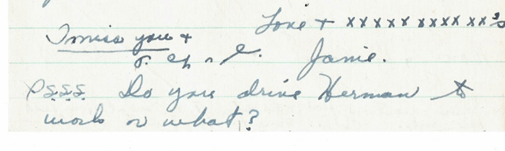 Love + xxxxx xxxx xx's
I miss you +
Janie.
PS.S.S. Do you drive Herman to
work or what?